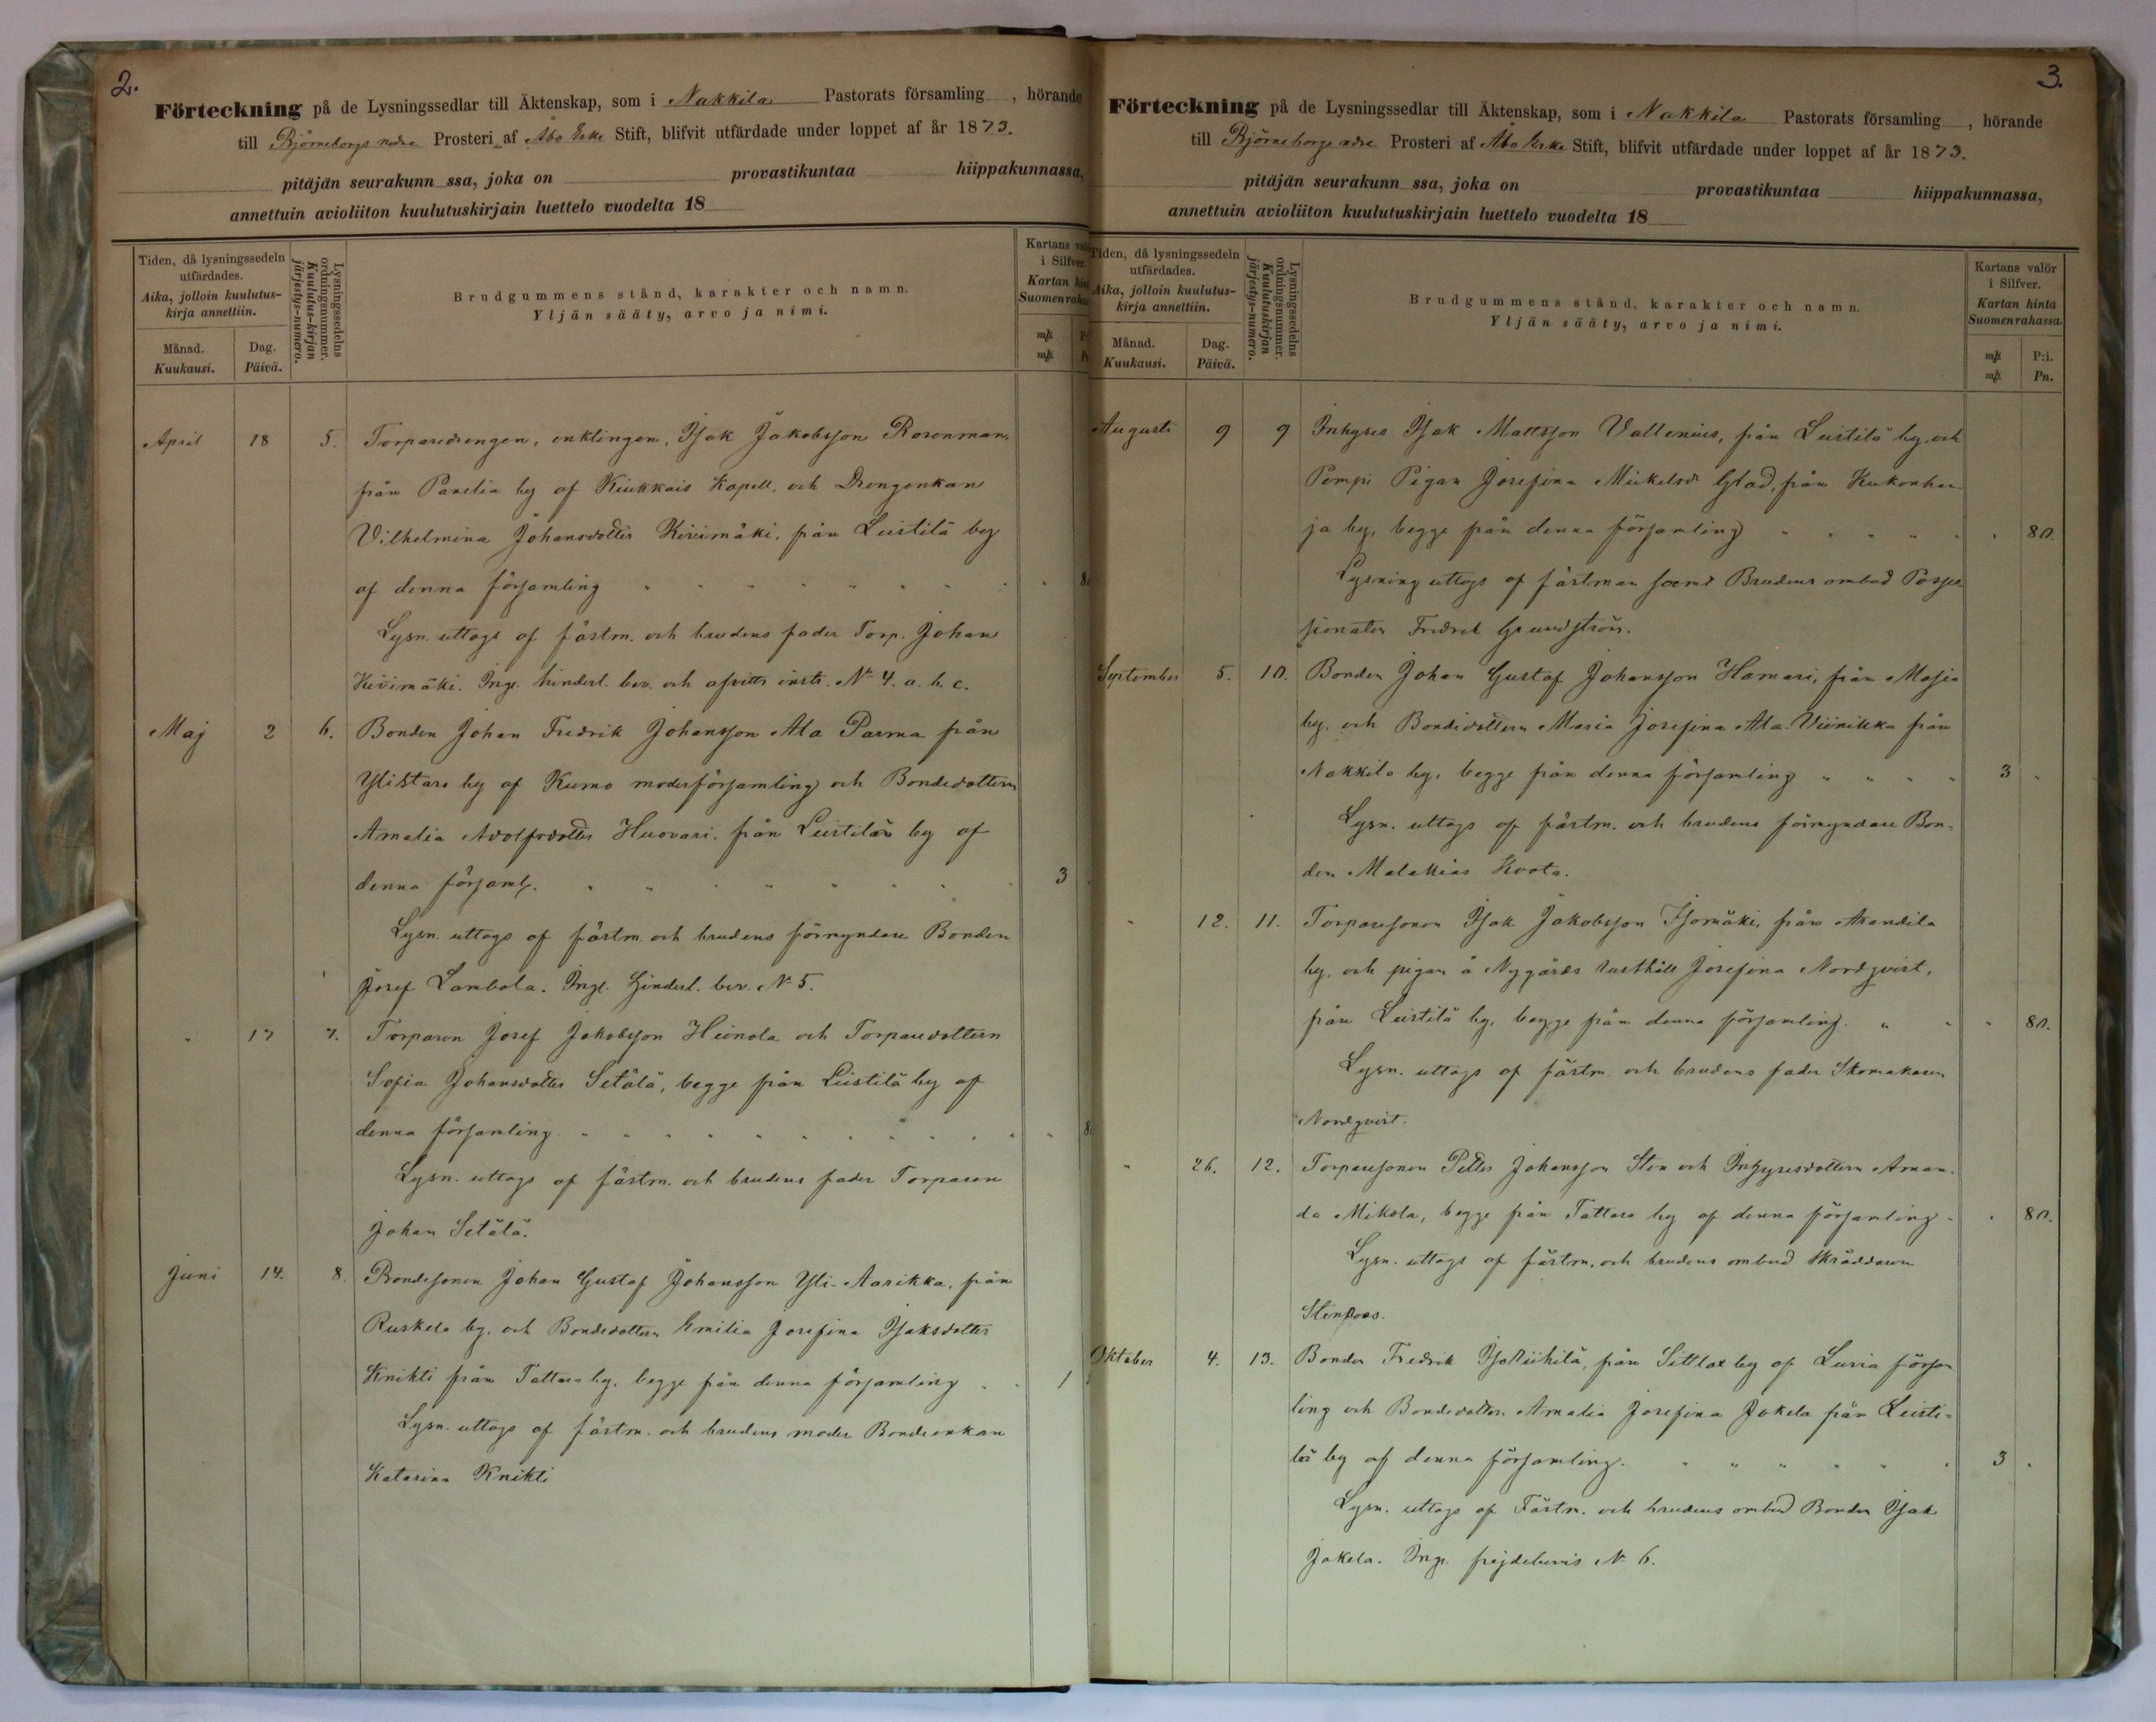 2.
Förteckning på de Lysningssedlar till Äktenskap, som i Nakkila Pastorats församling , hörande
till Björneborgs nedre Prosteri af Åbo Erke Stift, blifvit utfärdade under loppet af år 1873.
pitäjän seurakunn ssa, joka on provastikuntaa hiippakunnassa,
annettuin avioliiton kuulutuskirjain luettelo vuodelta 18
Tiden, då lysningssedeln
utfärdades.
Aika, jolloin kuulutus-
kirja annettiin.
Månad.
Kuukausi.
Dag.
Päivä.
Lysningssedelns
ordningsnummer.
Kuulutus-kirjan
järjestys-numero.
Brudgummens stånd, karakter och namn.
Yljän sääty, arvo ja nimi.
Kartans
i Silfver.
Kartan
Suomenrahassa
April 18 5. Torparedrengen, enklingen, Isak Jakobsson Rosenman
från Panelia by af Kiukkais Kapell, och Drengenkan
Vilhelmina Johansdotter Kivimäki, från Leistilä by
af denna församling
Lysn. uttogs af fästm. och brudens fader Torp. Johan
Kivimäki. Ingr. hinderl. bev. och afvittr. instr. No 4. a. b. c.
Maj 2 6. Bonden Johan Fredrik Johansson Ala Parma från
Ylistaro by af Kumo moderförsamling och Bondedottern
Amalia Adolfsdotter Huovari från Leistilä by af
denna församl. 3
Lysn. uttogs af fästm. och brudens förmyndare Bonden
Josef Lambola. Ingr. Hinderl. bev. No 5.
" 17 7. Torparen Josef Jakobsson Heinola och Torparedottern
Sofia Johansdotter Setälä, begge från Leistilä by af
denna församling.
Lysn. uttogs af fästm. och brudens fader Torparen
Johan Setälä.
Juni 14. 8. Bondesonen Johan Gustaf Johansson Yli-Aarikka, från
Ruskela by. och Bondedottern Emilia Josefina Isaksdotter
Knihti från Tattara by. begge från denna församling 1
Lysn. uttogs af fästm. och brudens moder Bondeenkan
Katarina Knihti
3.
Förteckning på de Lysningssedlar till Äktenskap, som i Nakkila Pastorats församling , hörande
till Björneborgs nedre Prosteri af Åbo Erke Stift, blifvit utfärdade under loppet af år 1873.
pitäjän seurakunn ssa, joka on provastikuntaa hiippakunnassa,
annettuin avioliiton kuulutuskirjain luettelo vuodelta 18
Tiden, då lysningssedeln
utfärdades.
Aika, jolloin kuulutus-
kirja annettiin.
Månad.
Kuukausi.
Dag.
Päivä.
Lysningssedelns
ordningsnummer.
Kuulutuskirjan
järjestys-numero.
Brudgummens stånd, karakter och namn.
Yljän sääty, arvo ja nimi.
Kartans valör
i Silfver.
Kartan hinta
Suomenrahassa.
P:i.
Pn.
Augusti 9 9 Inhyses Isak Mattsson Vallenius, från Leistilä by, och
Pigan Josefina Mickelsdr Glad, från Kukonhar-
ja by, begge från denna församling 80.
Lysning uttogs af fästman samt Brudens ombud Posses
sionaten Fredrik Grundström.
September 5. 10. Bonden Johan Gustaf Johansson Hamari, från Masia
by. och Bondedottern Maria Josefina Ala-Viinikka från
Nakkila by, begge från denna församling 3
Lysn. uttogs af fästm. och brudens förmyndare Bon-
den Malakias Koota.
" 12. 11. Torparesonen Isak Jakobsson Isomäki, från Anandila
by. och pigan å Nygårds rusthåll Josefina Nordqvist,
från Leistilä by, begge från denna församling. 80.
Lysn. uttogs af fästm. och brudens fader Skomakaren
Nordqvist.
" 26. 12. Torparesonen Petter Johansson Sten och Inhysesdottern Aman-
da Mikola, begge från Tattara by af denna församling 80.
Lysn. uttogs af fästm. och brudens ombud Skräddaren
Stenroos.
Oktober 4. 13. Bonden Fredrik Riihilä, från Sittlax by af Luvia försam
ling och Bondedottern Amalia Josefina Jakela från Leisti-
lä by af denna församling. 3
Lysn. uttogs af Fästm. och brudens ombud Bonden Isak
Jakela. Ingr. frejdebevis No 6.